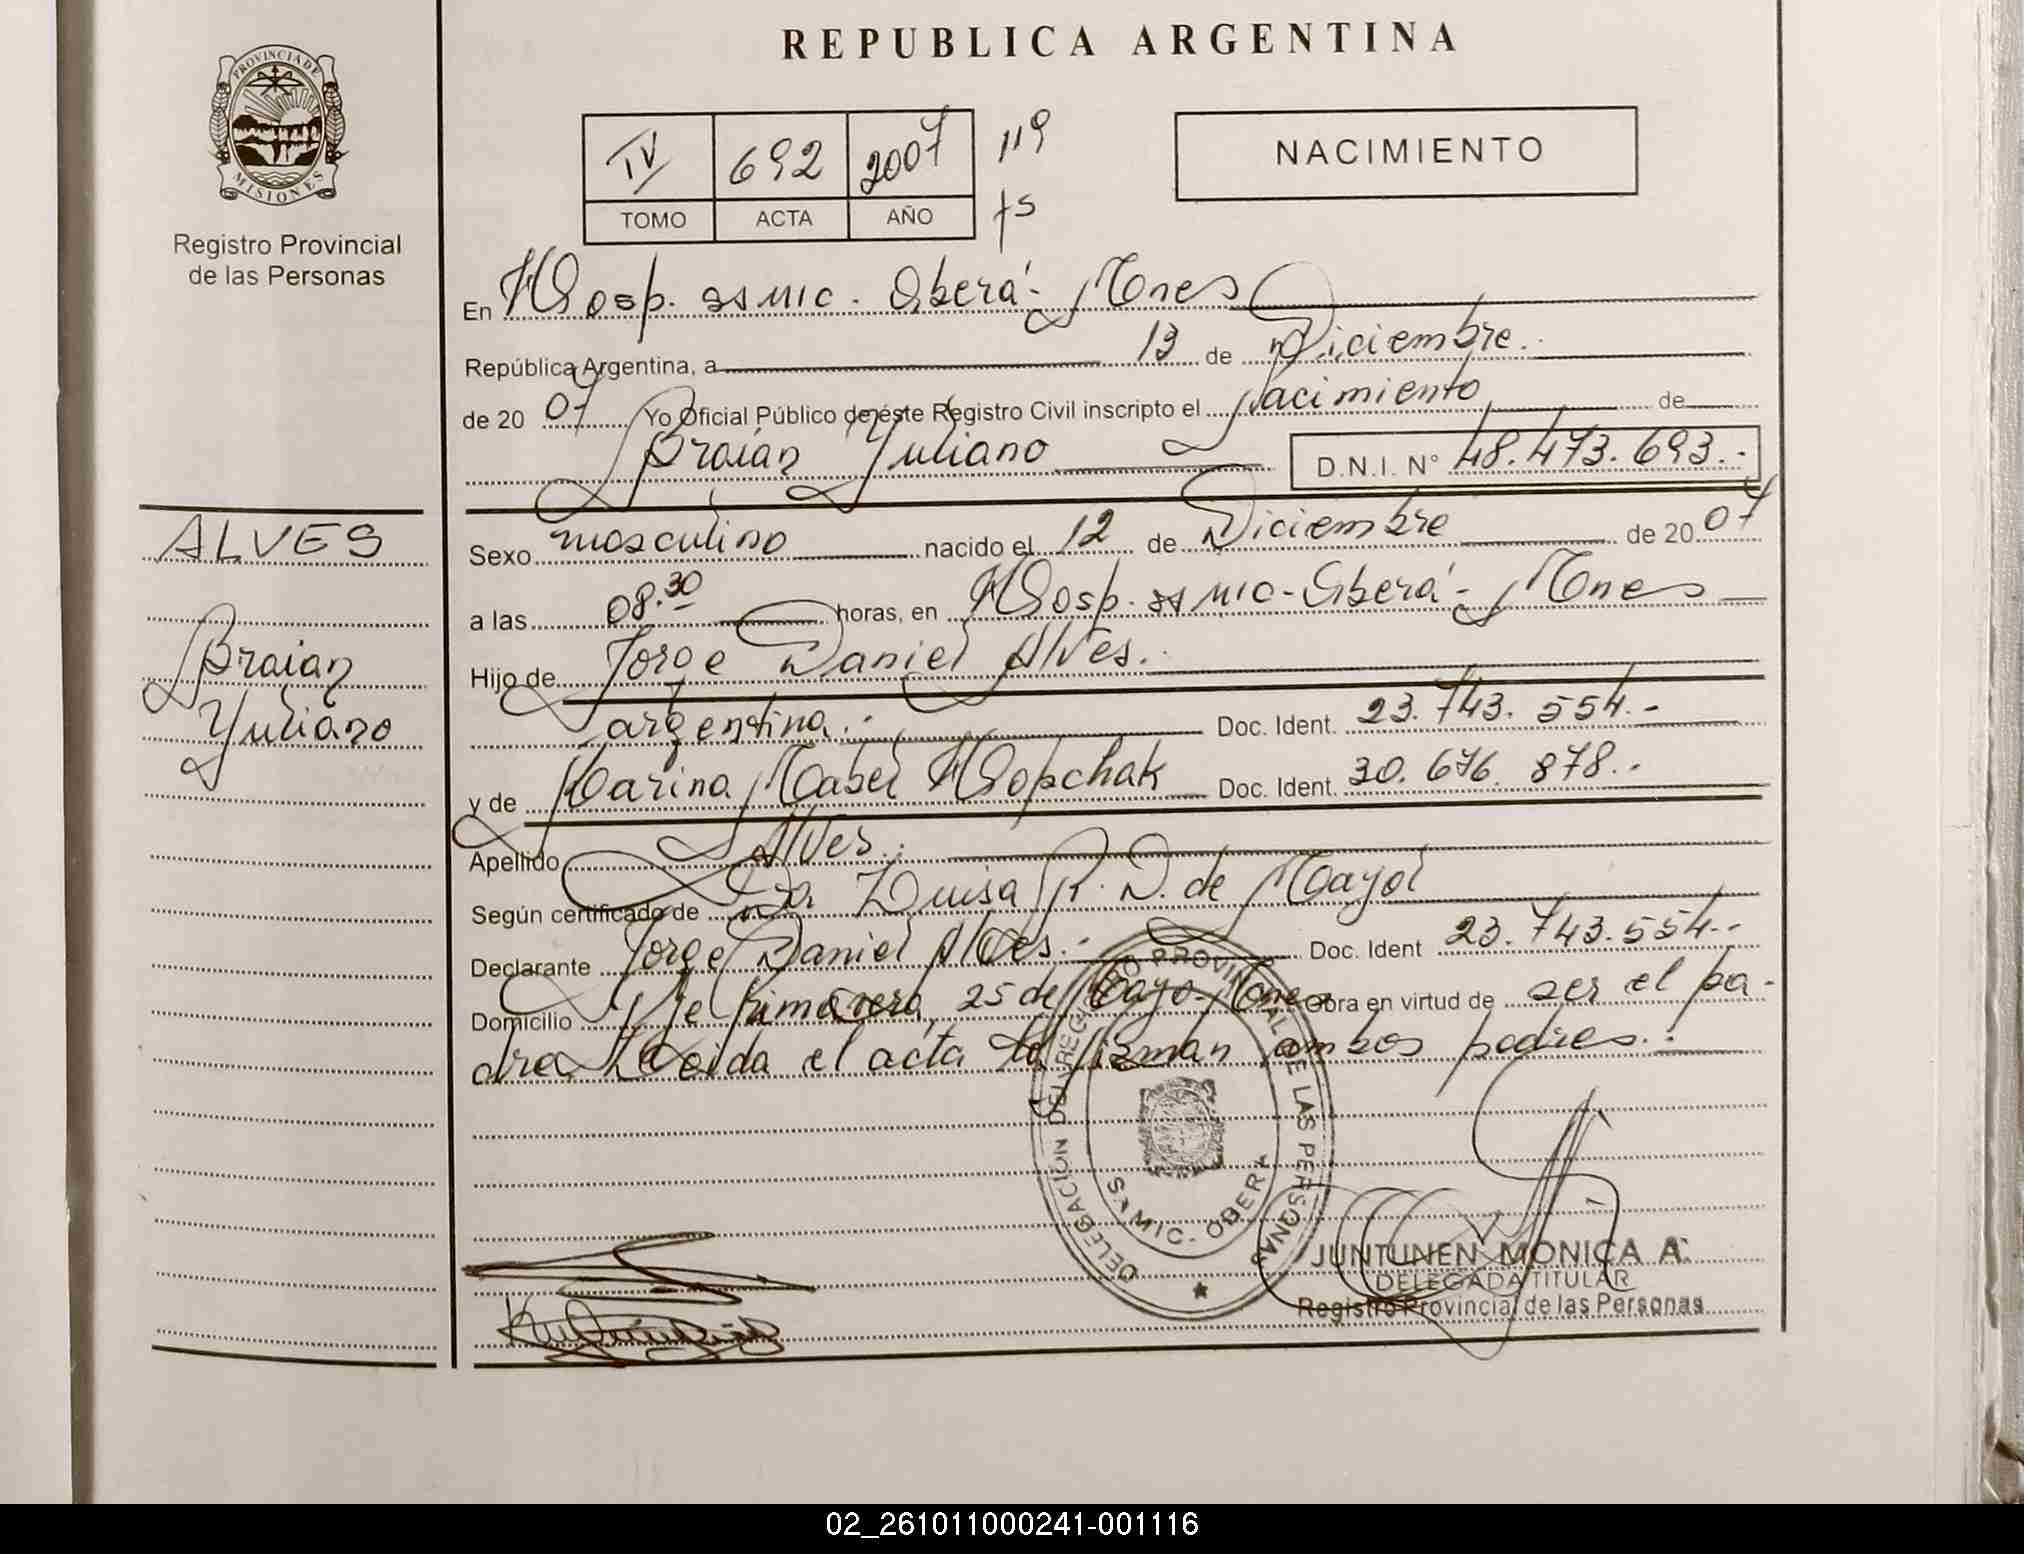 REPUBLICA ARGENTINA
PROVINCIA DE MISIONES
Registro Provincial
de las Personas
IV 692 2007 119
TOMO ACTA AÑO fs
NACIMIENTO
En Hosp. ss MIC. Oberá- Mnes
República Argentina, a 13 de Diciembre.
de 20 07 Yo Oficial Público de éste Registro Civil inscripto el Nacimiento de
Braian Yuliano D.N.I. N° 48.473.693.-
ALVES
Braian
Yuliano
Sexo masculino nacido el 12 de Diciembre de 20 07
a las 08.30 horas, en Hosp. ss MIC- Oberá- Mnes
Hijo de Jorge Daniel Alves.
argentina.- Doc. Ident. 23.743.554.-
y de Marina Mabel Hopchak Doc. Ident. 30.676.878.-
Apellido Alves.
Según certificado de Dra Luisa R. D. de Mayol
Declarante Jorge Daniel Alves.- Doc. Ident 23.743.554.-
Domicilio Vje Primavera, 25 de Mayo- Mnes Obra en virtud de ser el pa-
dre. Leida el acta la firman ambos padres.-
DELEGACION DEL REGISTRO PROVINCIAL DE LAS PERSONAS
SS MIC. OBERA
JUNTUNEN MONICA A.
DELEGADA TITULAR
Registro Provincial de las Personas
02_261011000241-001116